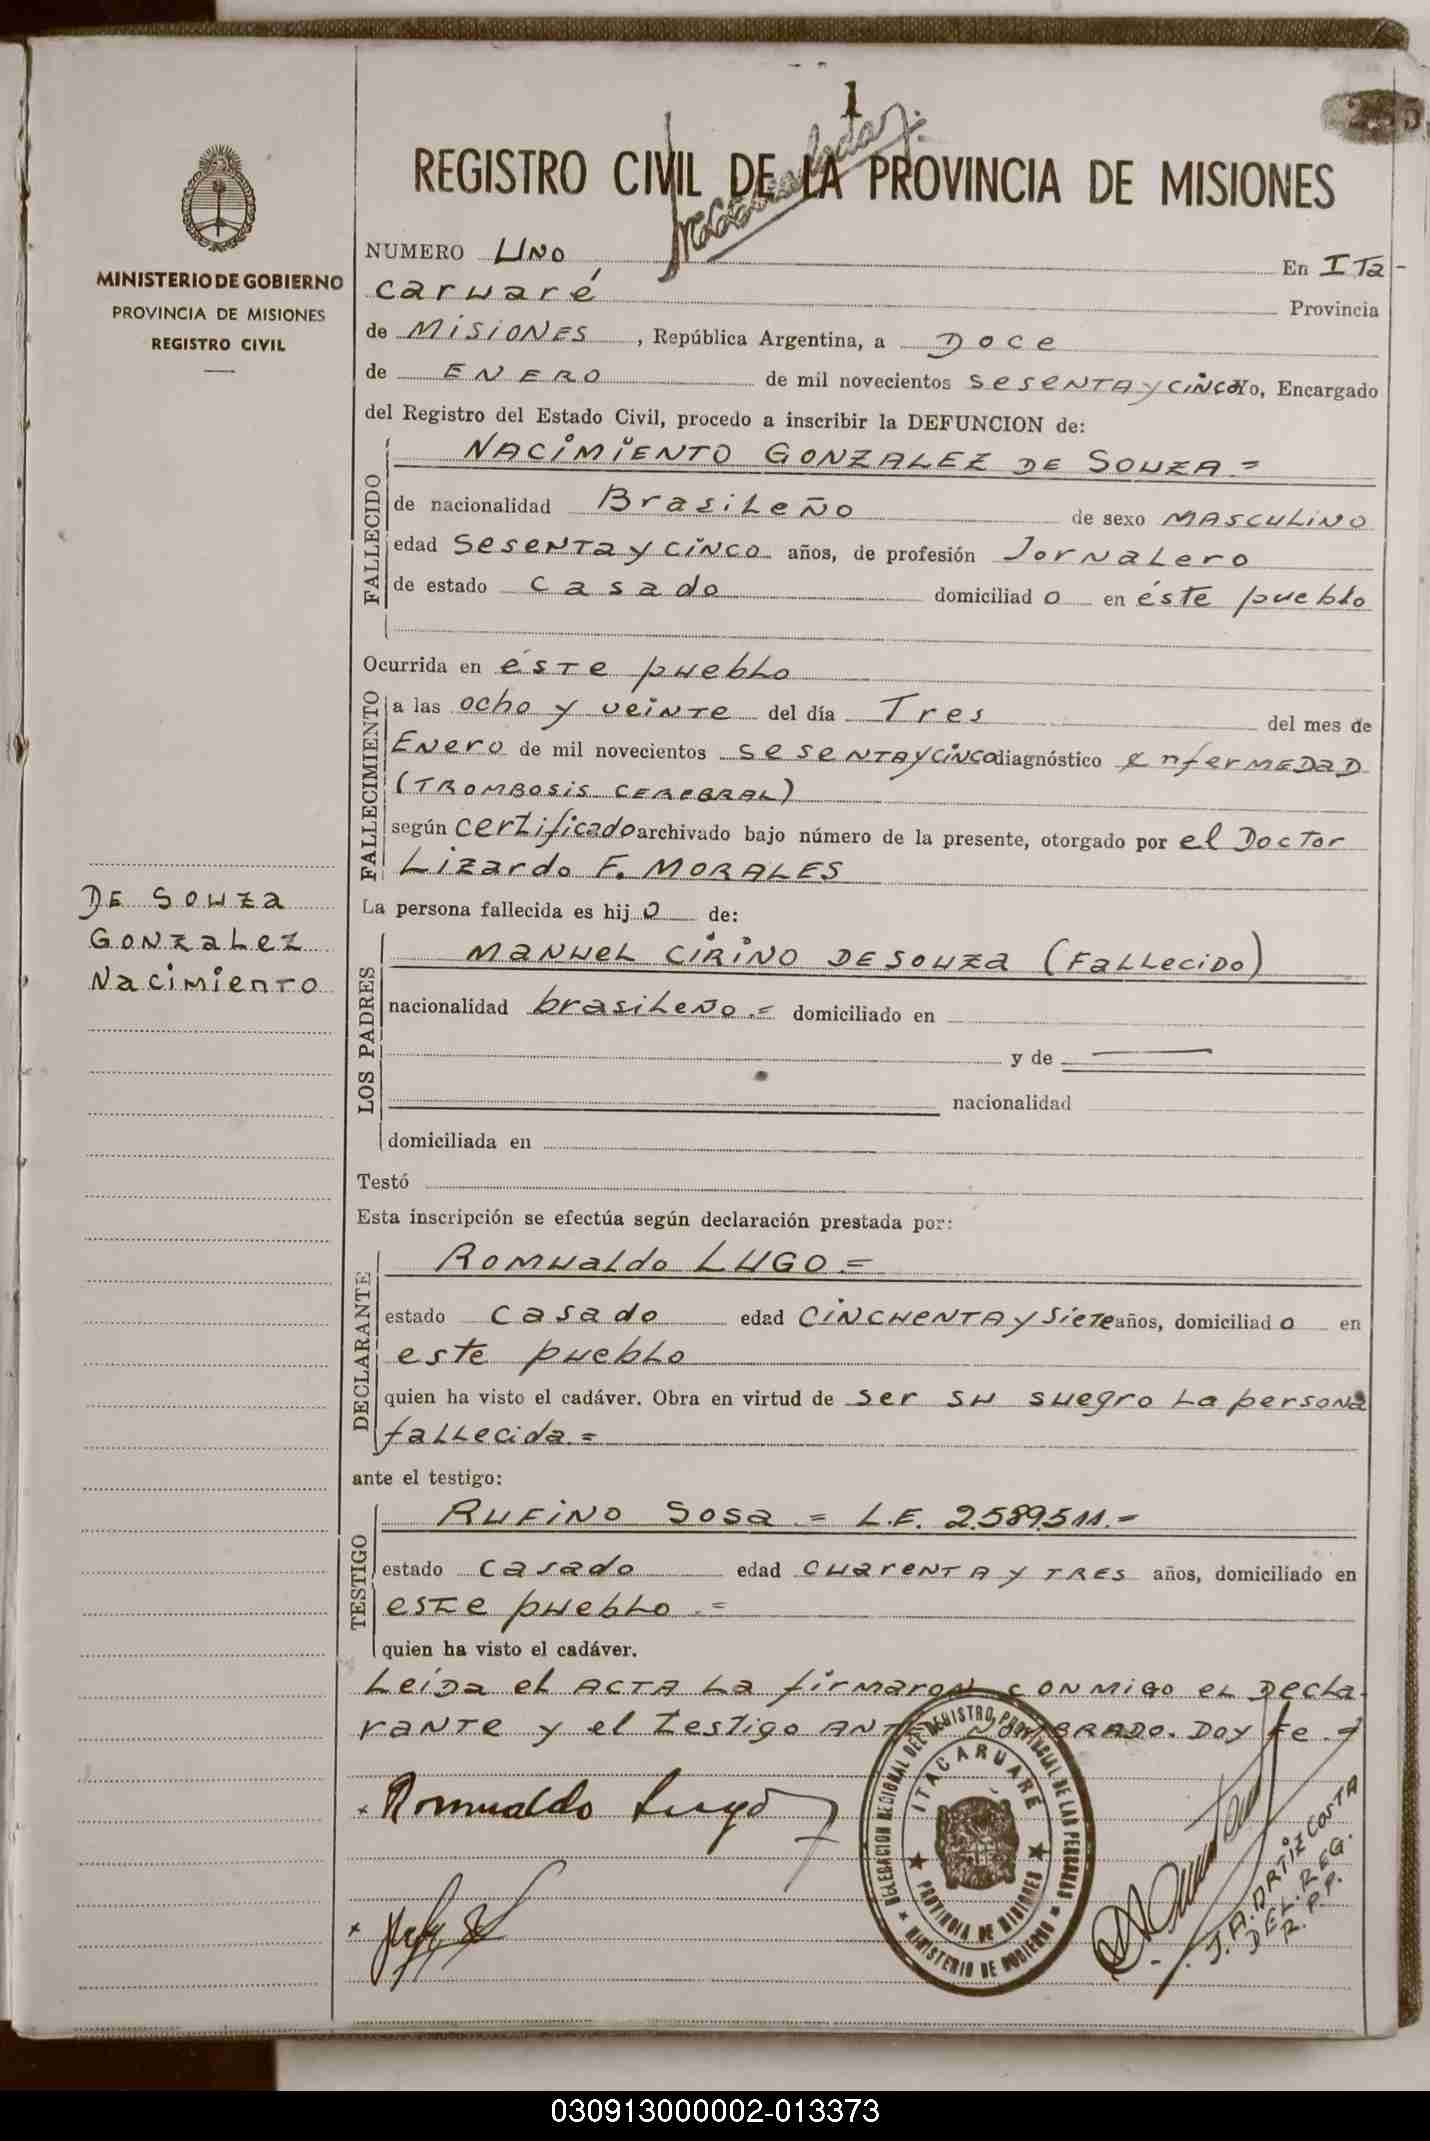 1
REGISTRO CIVIL DE LA PROVINCIA DE MISIONES
MINISTERIO DE GOBIERNO
PROVINCIA DE MISIONES
REGISTRO CIVIL
NUMERO Uno En ITa-
caruaré Provincia
de MISIONES, República Argentina, a Doce
de ENERO de mil novecientos sesENTA y CINCO Yo, Encargado
del Registro del Estado Civil, procedo a inscribir la DEFUNCION de:
FALLECIDO
NACIMIENTO GONZALEZ DE SOUZA =
de nacionalidad Brasileño de sexo MASCULINO
edad sesenta y cinco años, de profesión Jornalero
de estado casado domiciliad o en éste pueblo
Ocurrida en éste pueblo
FALLECIMIENTO
a las ocho y veinte del día Tres del mes de
Enero de mil novecientos sesENTA y CINCO diagnóstico enferMEDaD
(TROMBOSIS CEREBRAL)
según certificado archivado bajo número de la presente, otorgado por el Doctor
Lizardo F. MORALES
DE Souza
Gonzalez
Nacimiento
La persona fallecida es hij o de:
LOS PADRES
MANUEL CIRINO DE SOUZA (FaLLeciDo)
nacionalidad brasileño.= domiciliado en
y de
nacionalidad
domiciliada en
Testó
Esta inscripción se efectúa según declaración prestada por:
DECLARANTE
Romualdo LUGO =
estado casado edad CINCUENTA y siete años, domiciliad o en
este pueblo
quien ha visto el cadáver. Obra en virtud de ser su suegro La persona
fallecida.=
ante el testigo:
TESTIGO
RUFINO SOSA = L.E. 2.589.511.-
estado casado edad cuarENTA y TRES años, domiciliado en
este pueblo.=
quien ha visto el cadáver.
Leída el ACTA La firmaron conmigo el Decla-
rante y el testigo ANTE NOMBRADO. Doy Fe.-
Romualdo Lugo
DELEGACION REGIONAL DEL REGISTRO PROVINCIAL DE LAS PERSONAS
ITACARUARE
PROVINCIA DE MISIONES
MINISTERIO DE GOBIERNO
J.A. ORTIZ COSTA
DEL. REG.
R.P.P.
030913000002-013373